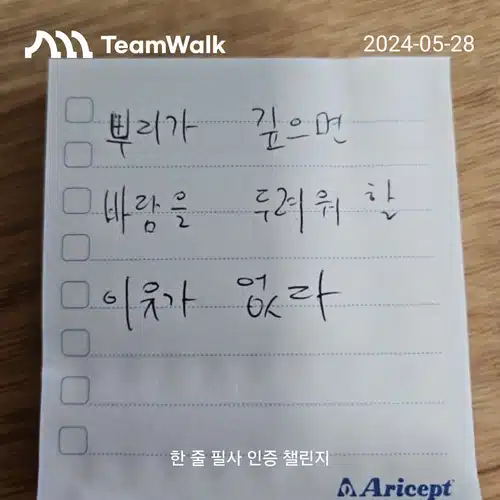 TeamWalk
2024-05-28
뿌리가 깊으면
바람을 두려워 할
이웃가 없다
한 줄 필사 인증 챌린지
Aricept